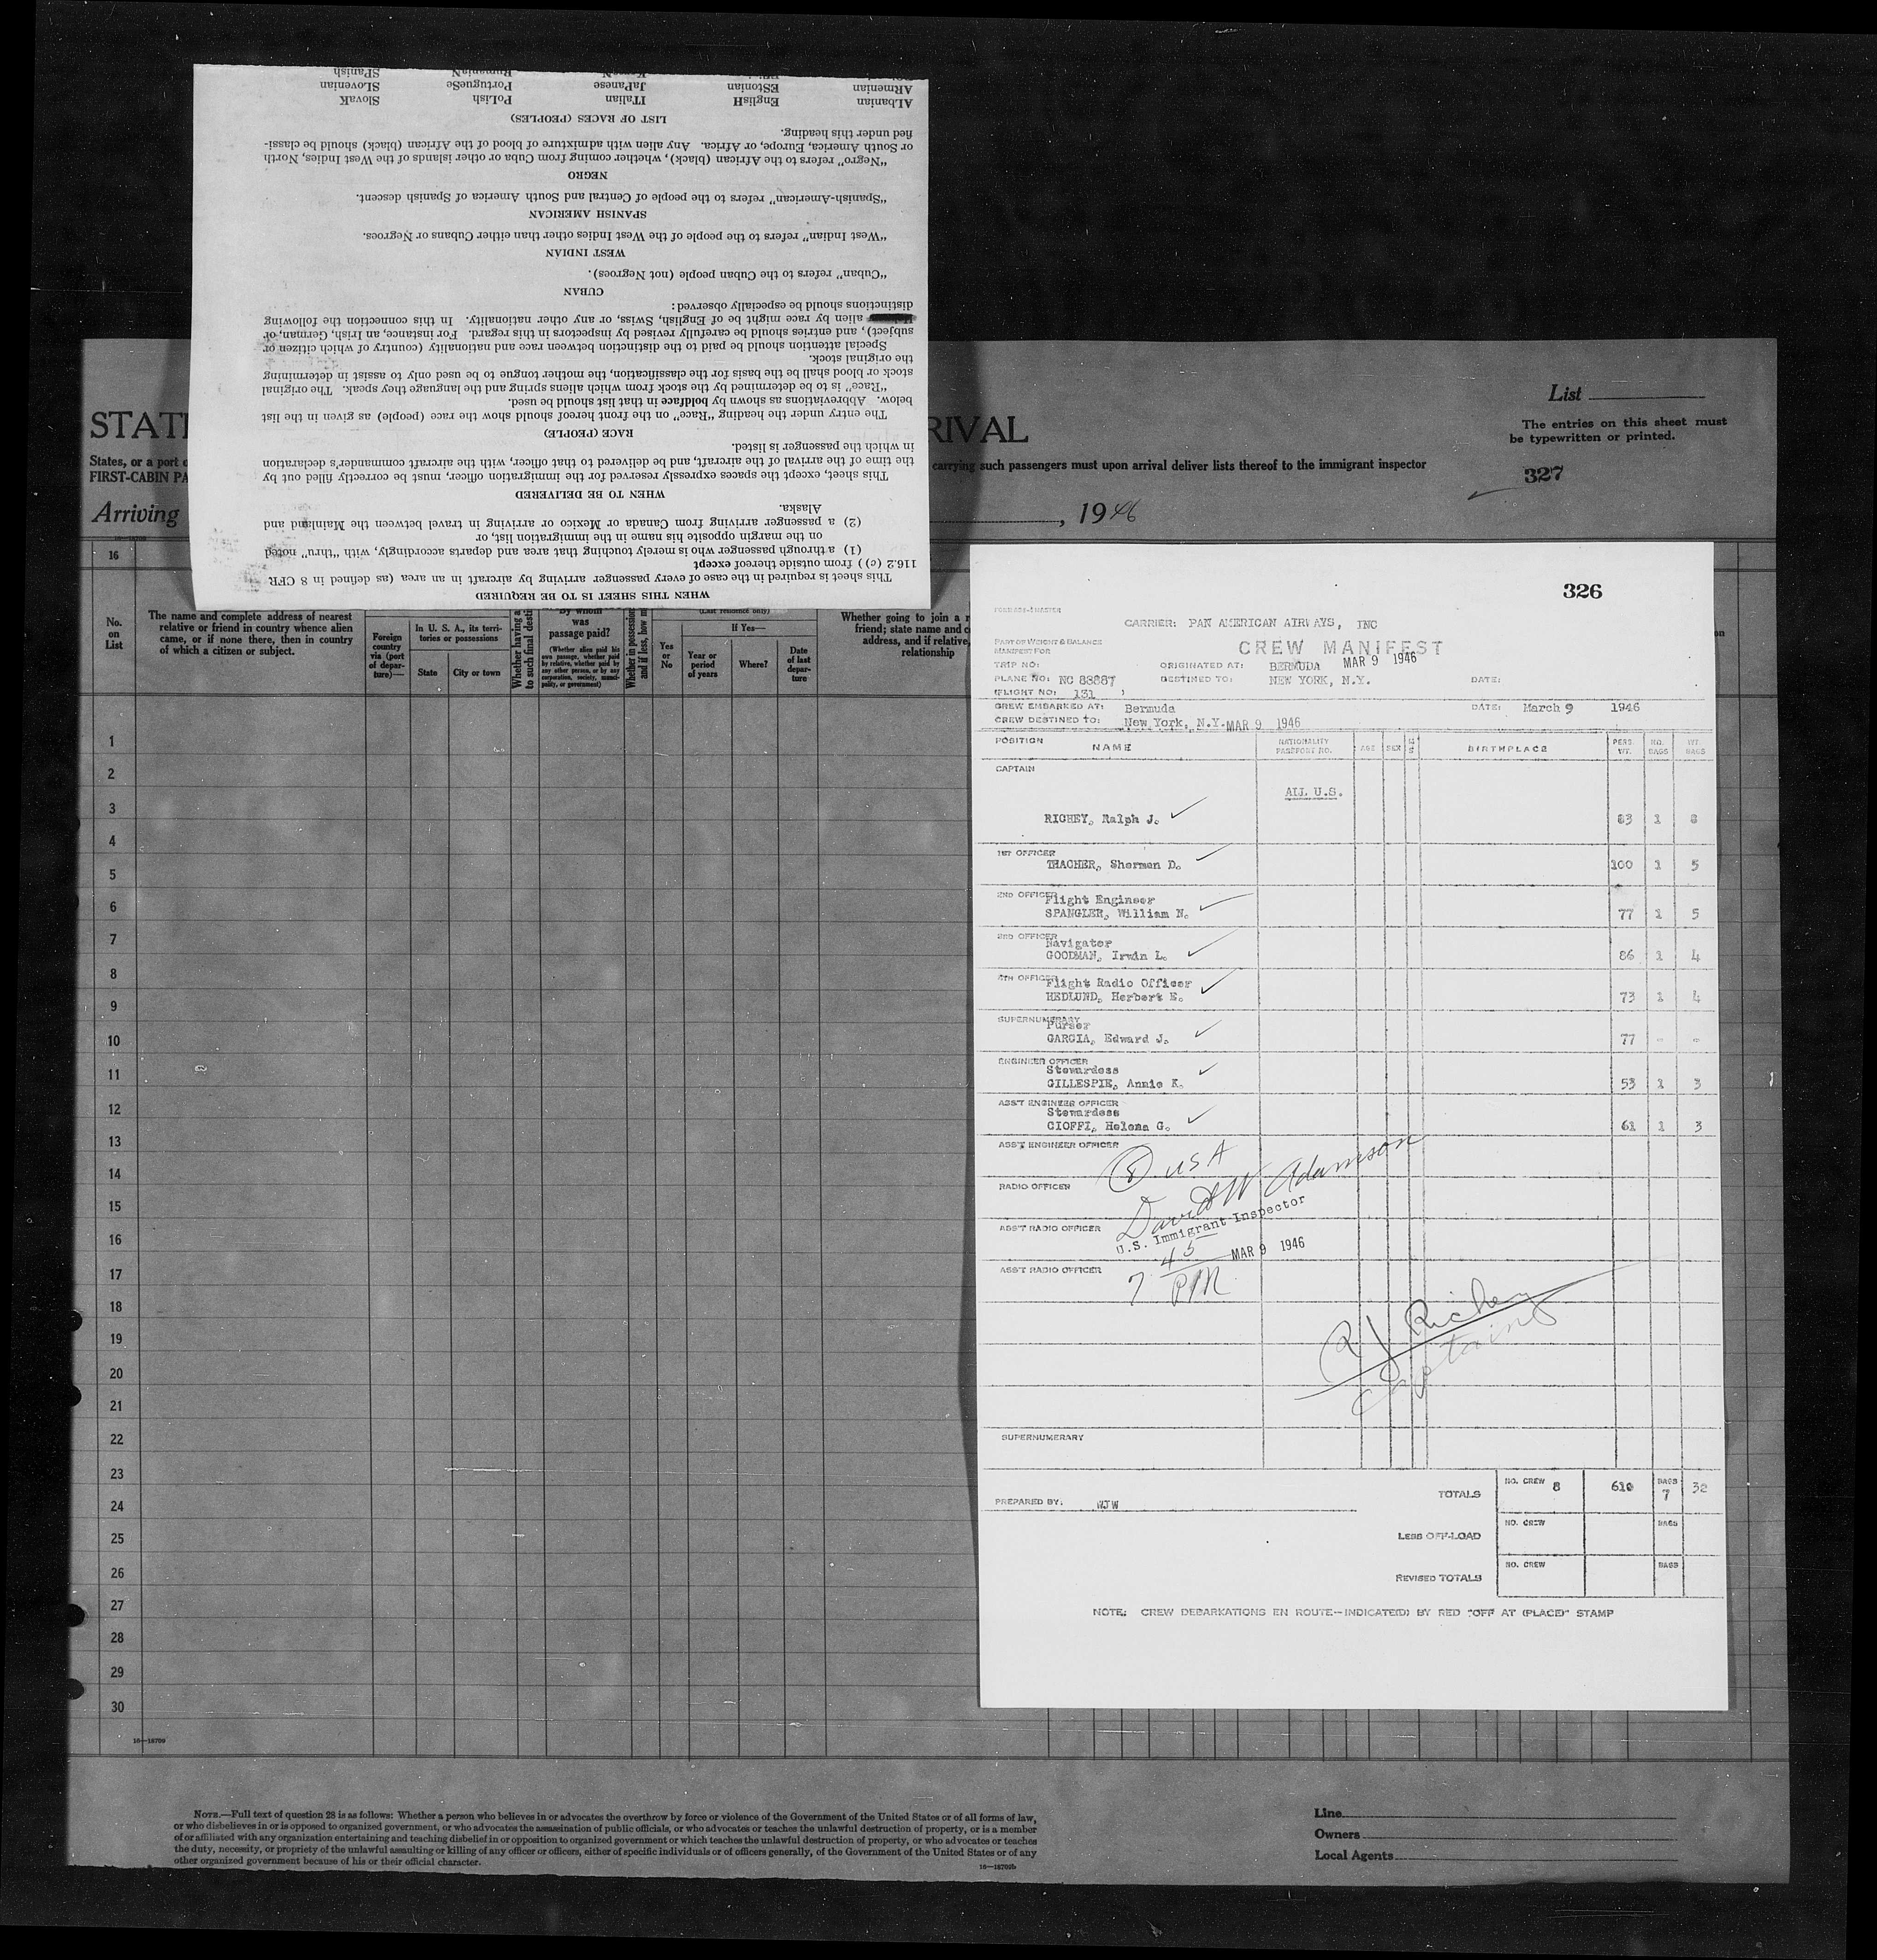 WHEN THIS SHEET IS TO BE REQUIRED
This sheet is required in the case of every passenger arriving by aircraft in an area (as defined in 8 CFR
116.2 (c)) from outside thereof except
(1) a through passenger who is merely touching that area and departs accordingly, with "thru" noted
on the margin opposite his name in the immigration list, or
(2) a passenger arriving from Canada or Mexico or arriving in travel between the Mainland and
Alaska.
WHEN TO BE DELIVERED
This sheet, except the spaces expressly reserved for the immigration officer, must be correctly filled out by
the time of the arrival of the aircraft, and be delivered to that officer, with the aircraft commander's declaration
in which the passenger is listed.
RACE (PEOPLE)
The entry under the heading "Race" on the front hereof should show the race (people) as given in the list
below. Abbreviations as shown by boldface in that list should be used.
"Race" is to be determined by the stock from which aliens spring and the language they speak. The original
stock or blood shall be the basis for the classification, the mother tongue to be used only to assist in determining
the original stock.
Special attention should be paid to the distinction between race and nationality (country of which citizen or
subject), and entries should be carefully revised by inspectors in this regard. For instance, an Irish, German, or
alien by race might be of English, Swiss, or any other nationality. In this connection the following
distinctions should be especially observed:
CUBAN
"Cuban" refers to the Cuban people (not Negroes).
WEST INDIAN
"West Indian" refers to the people of the West Indies other than either Cubans or Negroes.
SPANISH AMERICAN
"Spanish-American" refers to the people of Central and South America of Spanish descent.
NEGRO
"Negro" refers to the African (black), whether coming from Cuba or other islands of the West Indies, North
or South America, Europe, or Africa. Any alien with admixture of blood of the African (black) should be classi-
fied under this heading.
LIST OF RACES (PEOPLES)
ALbanian EnglisH ITalian PoLish SlovaK
ARmenian EStonian JaPanese PortugueSe SLovenian
RumaniaN SPanish
STAT
RIVAL
List
The entries on this sheet must
be typewritten or printed.
States, or a port o
carrying such passengers must upon arrival deliver lists thereof to the immigrant inspector
FIRST-CABIN PA
327
Arriving
, 1946
16
No.
on
List
The name and complete address of nearest
relative or friend in country whence alien
came, or if none there, then in country
of which a citizen or subject.
Foreign
country
via (port
of depar-
ture)—
In U. S. A., its terri-
tories or possessions
State City or town
Whether having a
to such final desti
By whom
was
passage paid?
(Whether alien paid his
own passage, whether paid
by relative, whether paid by
any other person, or by any
corporation, society, munici-
pality, or government)
Whether in possession
and if less, how m
(Last residence only)
Yes
or
No
If Yes—
Year or
period
of years
Where?
Date
of last
depar-
ture
Whether going to join a r
friend; state name and c
address, and if relative,
relationship
1
2
3
4
5
6
7
8
9
10
11
12
13
14
15
16
17
18
19
20
21
22
23
24
25
26
27
28
29
30
16—18709
326
CARRIER: PAN AMERICAN AIRWAYS, INC
PART OF WEIGHT & BALANCE
MANIFEST FOR
CREW MANIFEST
TRIP NO: ORIGINATED AT: BERMUDA MAR 9 1946
PLANE NO: NC 88887 DESTINED TO: NEW YORK, N.Y. DATE:
(FLIGHT NO: 131 )
CREW EMBARKED AT: Bermuda DATE: March 9 1946
CREW DESTINED TO: New York, N.Y. MAR 9 1946
POSITION NAME NATIONALITY PASSPORT NO. AGE SEX BIRTHPLACE PERS. WT. NO. BAGS WT. BAGS
CAPTAIN
ALL U.S.
RICHEY, Ralph J. 83 1 8
1ST OFFICER
THACHER, Sherman D. 100 1 5
2ND OFFICER
Flight Engineer
SPANGLER, William N. 77 1 5
Navigator
GOODMAN, Irwin L. 86 1 4
4TH OFFICER
Flight Radio Officer
HEDLUND, Herbert E. 73 1 4
SUPERNUMERARY
Purser
GARCIA, Edward J. 77 - -
ENGINEER OFFICER
Stewardess
GILLESPIE, Annie K. 53 1 3
ASS'T ENGINEER OFFICER
Stewardess
CIOFFI, Helena G. 61 1 3
ASS'T ENGINEER OFFICER
8 USA
RADIO OFFICER
David W Adamson
U.S. Immigrant Inspector
ASS'T RADIO OFFICER
MAR 9 1946
ASS'T RADIO OFFICER
7 45 PM
R J Richey
Captain
SUPERNUMERARY
PREPARED BY: WJW
TOTALS NO. CREW 8 610 BAGS 7 32
LESS OFF-LOAD NO. CREW BAGS
REVISED TOTALS NO. CREW BAGS
NOTE: CREW DEBARKATIONS EN ROUTE--INDICATE(D) BY RED "OFF AT (PLACE)" STAMP
NOTE.—Full text of question 28 is as follows: Whether a person who believes in or advocates the overthrow by force or violence of the Government of the United States or of all forms of law,
or who disbelieves in or is opposed to organized government, or who advocates the assassination of public officials, or who advocates or teaches the unlawful destruction of property, or is a member
of or affiliated with any organization entertaining and teaching disbelief in or opposition to organized government or which teaches the unlawful destruction of property, or who advocates or teaches
the duty, necessity, or propriety of the unlawful assaulting or killing of any officer or officers, either of specific individuals or of officers generally, of the Government of the United States or of any
other organized government because of his or their official character.
16—18709b
Line
Owners
Local Agents